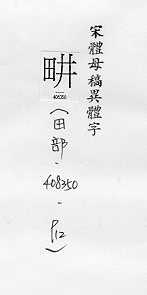 宋體母稿異體字
畊
408350
(田部-408350-P12)